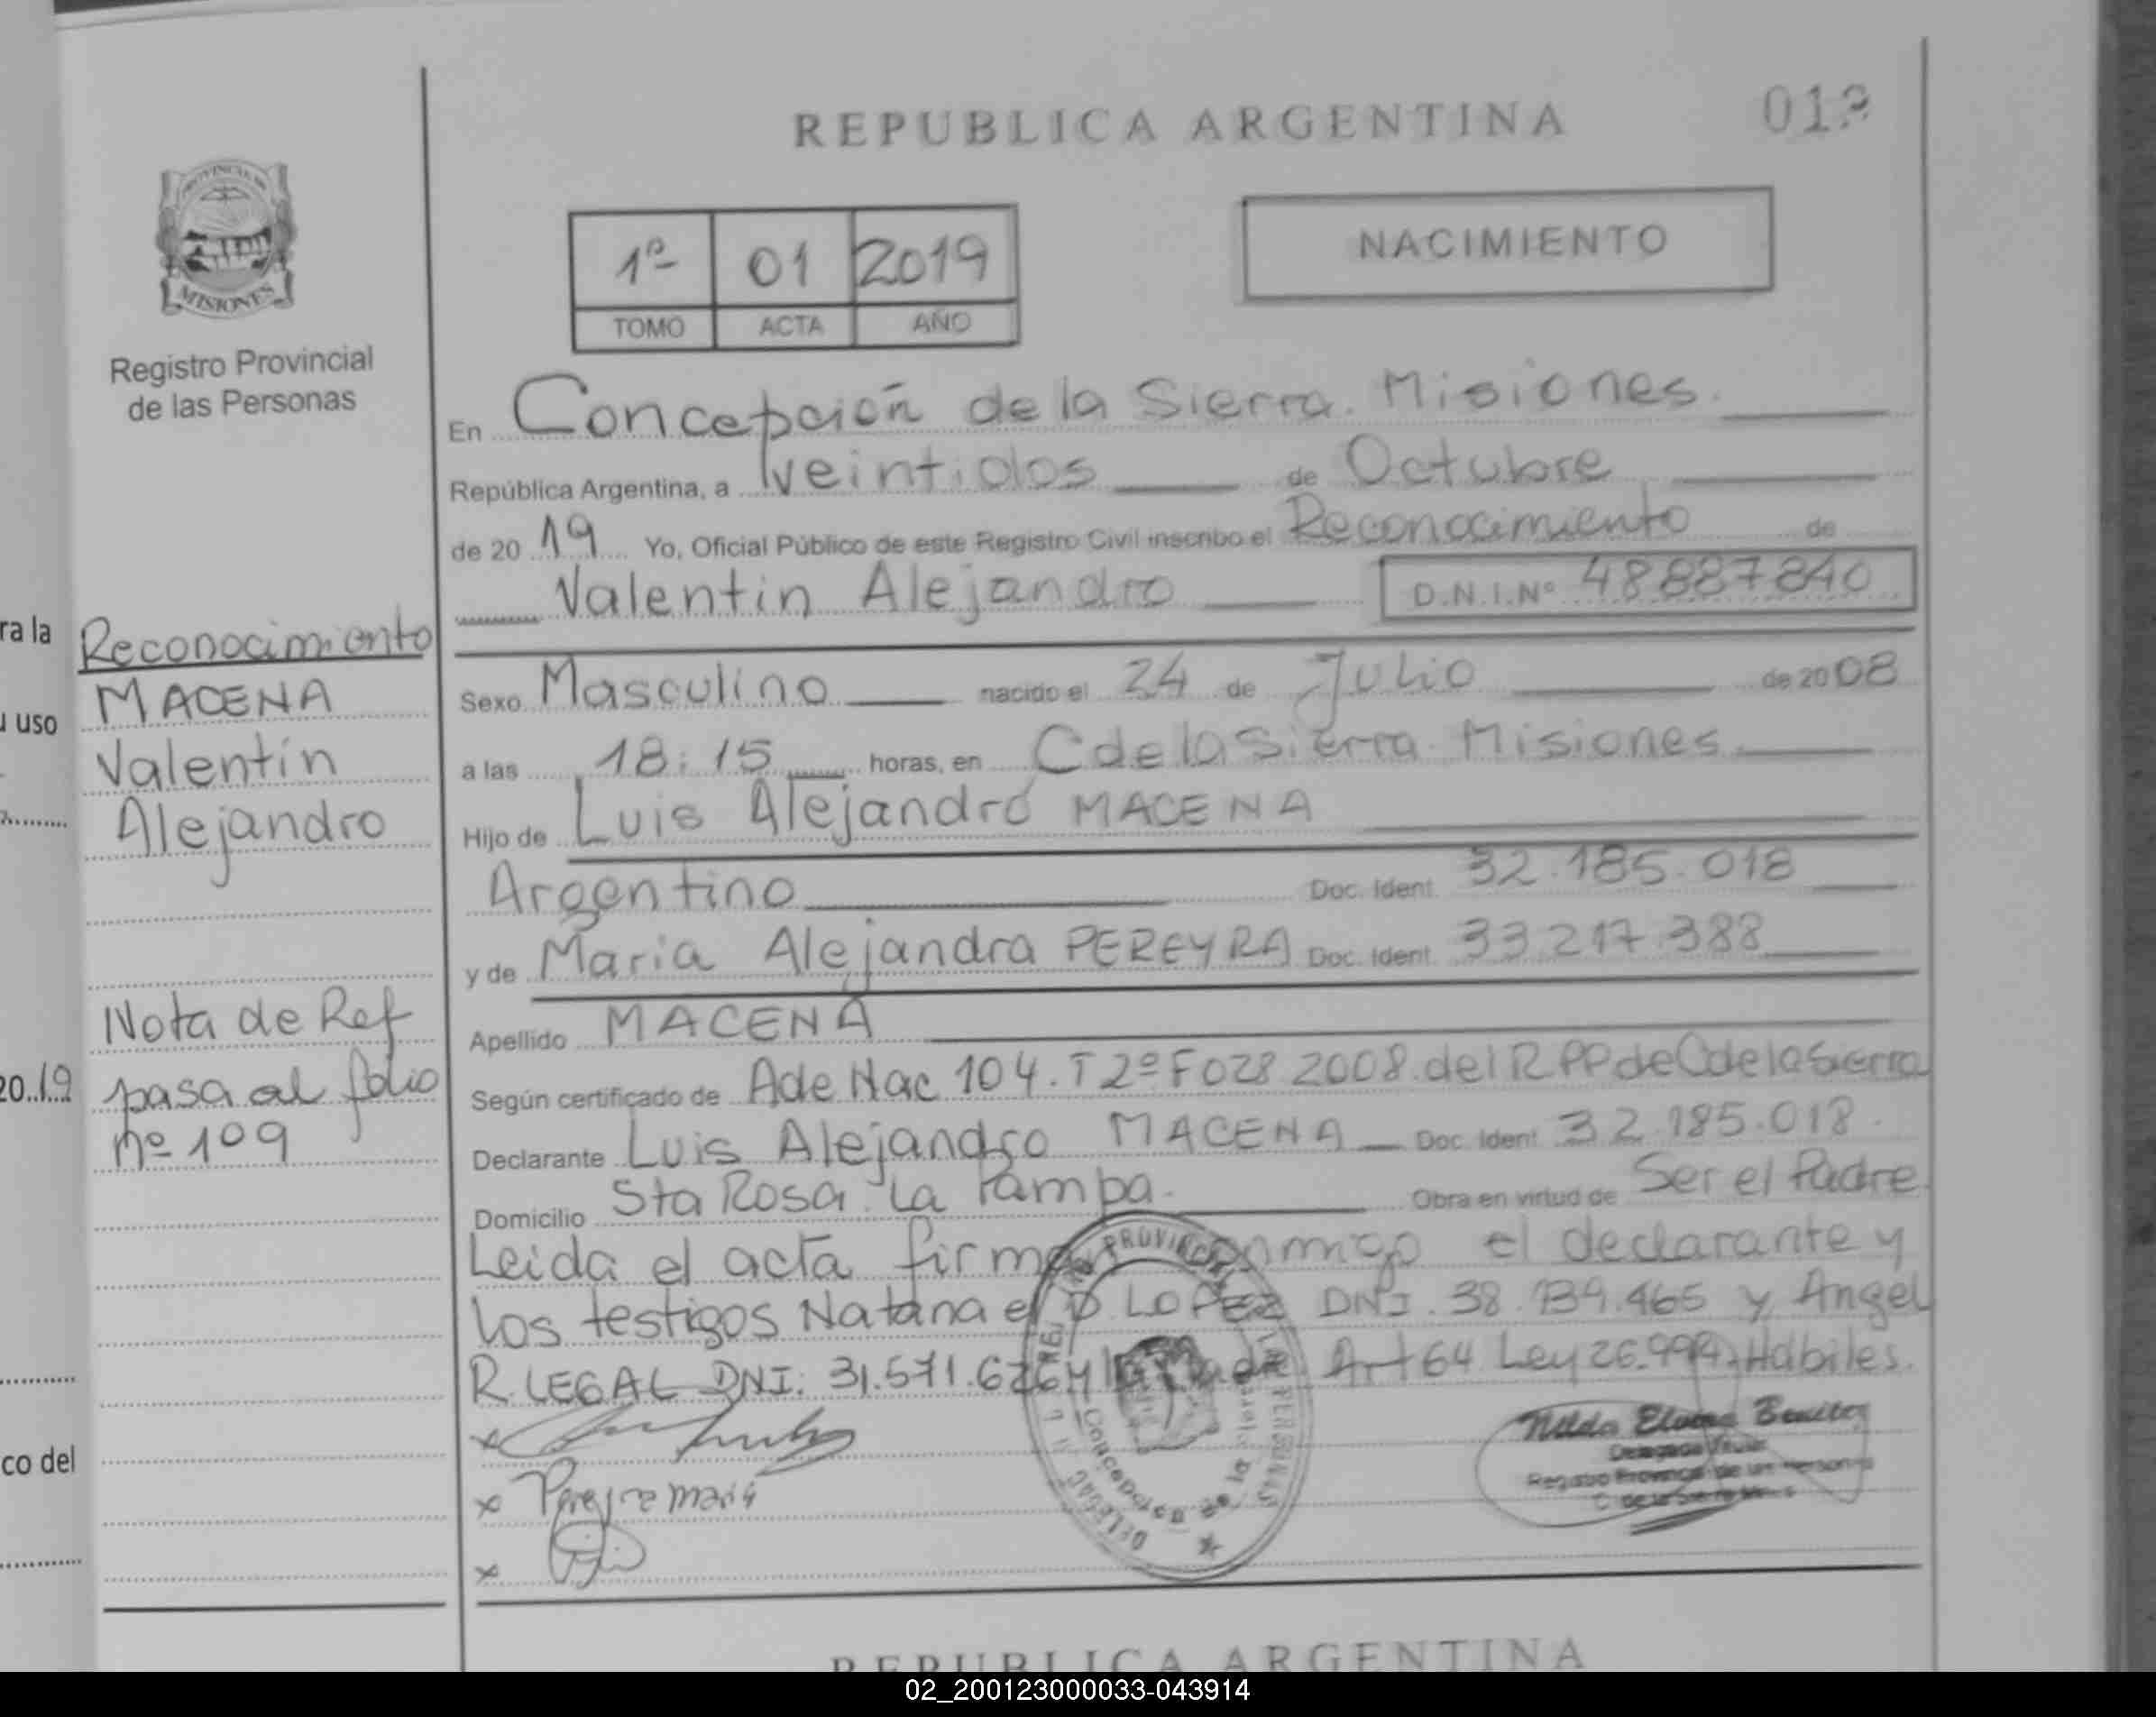 REPUBLICA ARGENTINA
PROVINCIA DE
MISIONES
Registro Provincial
de las Personas
1º 01 2019
TOMO ACTA AÑO
NACIMIENTO
En Concepción de la Sierra. Misiones.
República Argentina, a veintidos de Octubre
de 2019 Yo, Oficial Público de este Registro Civil inscribo el Reconocimiento de
Valentin Alejandro D.N.I.Nº 48887840
Sexo Masculino nacido el 24 de Julio de 2008
a las 18:15 horas, en C de la Sierra. Misiones
Hijo de Luis Alejandro MACENA
Argentino Doc. Ident. 32.185.018
y de Maria Alejandra PEREYRA Doc. Ident. 33.217.388
Apellido MACENA
Según certificado de A de Nac 104. T 2º F 028 2008. del R.PP de C de la Sierra
Declarante Luis Alejandro MACENA Doc. Ident. 32.185.018.
Domicilio Sta Rosa. La Pampa. Obra en virtud de Ser el Padre
Leida el acta firman conmigo el declarante y
los testigos Natanael D. LOPEZ DNI. 38.139.465 y Angel
R. LEGAL DNI. 31.571.626 y la Madre Art 64 Ley 26.994. Habiles.
x
x Pereyra Maria
x
Nilda Elvira Benitez
Delegada Titular
Registro Provincial de las Personas
Reconocimiento
MACENA
Valentín
Alejandro
Nota de Ref
pasa al folio
nº 109
ra la
uso
20.19
co del
REPUBLICA ARGENTINA
02_200123000033-043914